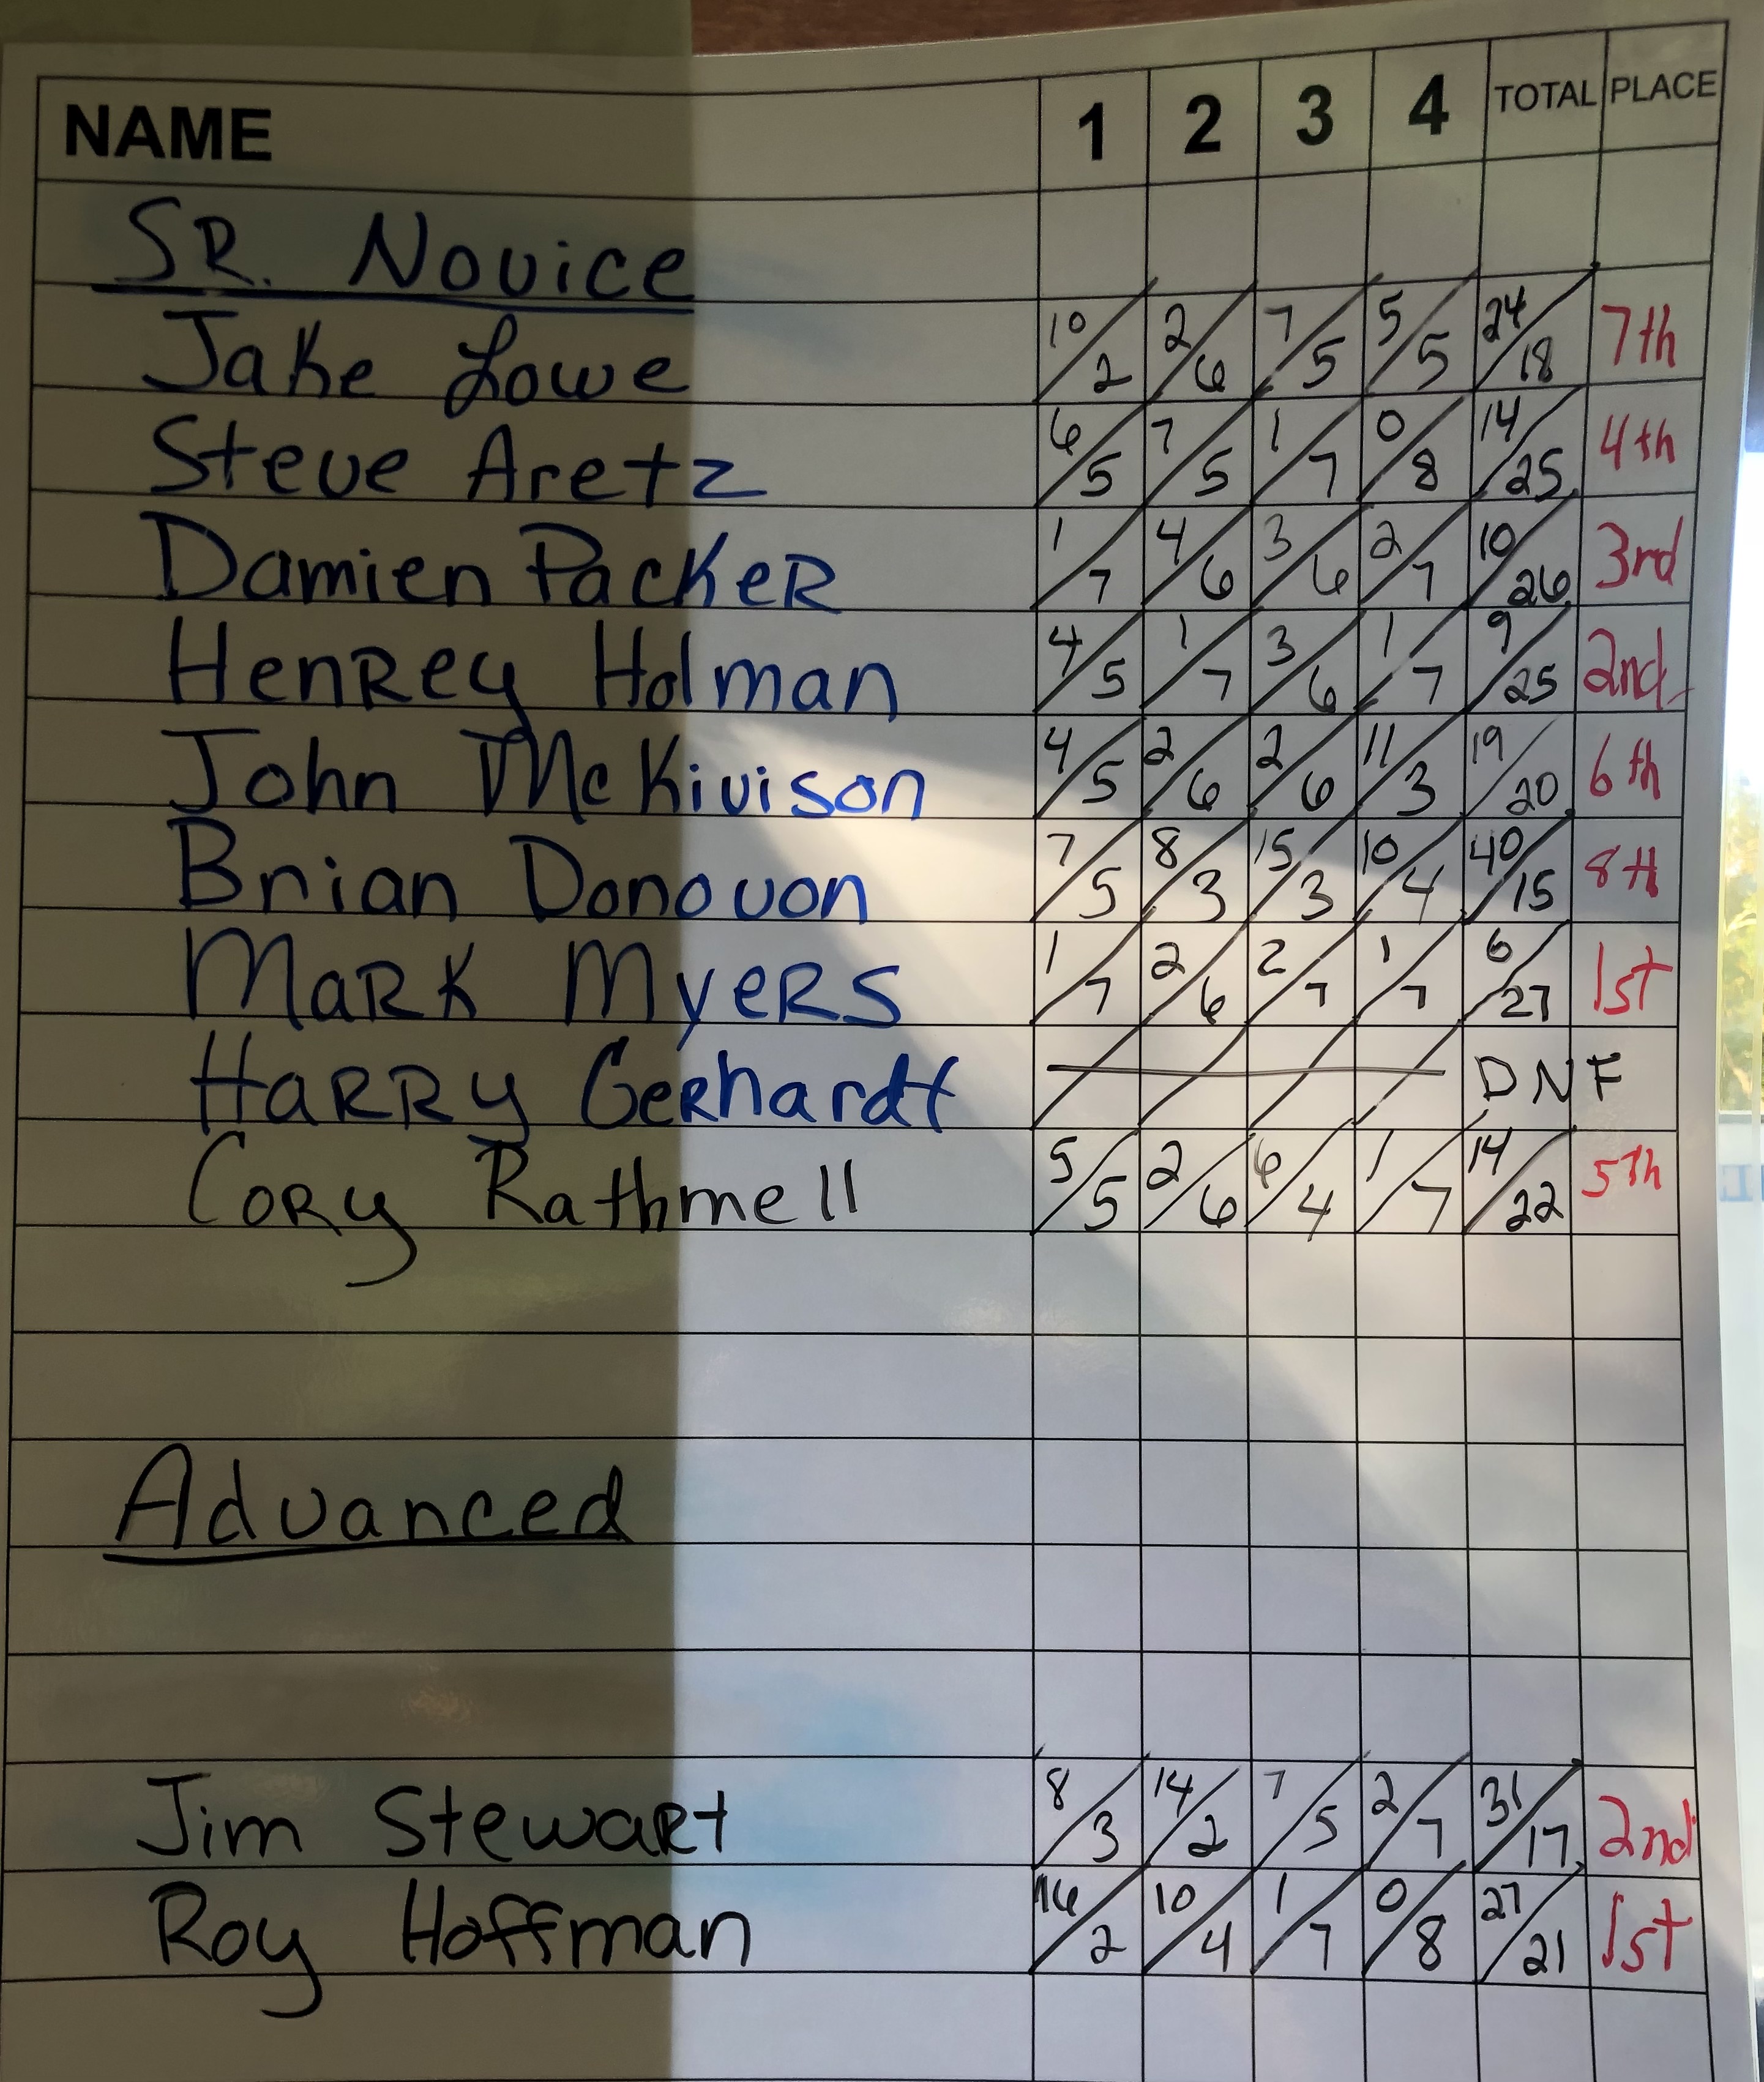 NAME 1 2 3 4 TOTAL PLACE
SR. Novice
Jake Lowe 10/2 2/6 7/5 5/5 24/18 7th
Steve Aretz 6/5 7/5 1/7 0/8 14/25 4th
Damien Packer 1/7 4/6 3/6 2/7 10/26 3rd
Henrey Holman 4/5 1/7 3/6 1/7 9/25 2nd
John McKivison 4/5 2/6 2/6 11/3 19/20 6th
Brian Donovon 7/5 8/3 15/3 10/4 40/15 8th
Mark Myers 1/7 2/6 2/7 1/7 6/27 1st
Harry Gerhardt DNF
Cory Rathmell 5/5 2/6 6/4 1/7 14/22 5th
Advanced
Jim Stewart 8/3 14/2 7/5 2/7 31/17 2nd
Roy Hoffman 16/2 10/4 1/7 0/8 27/21 1st